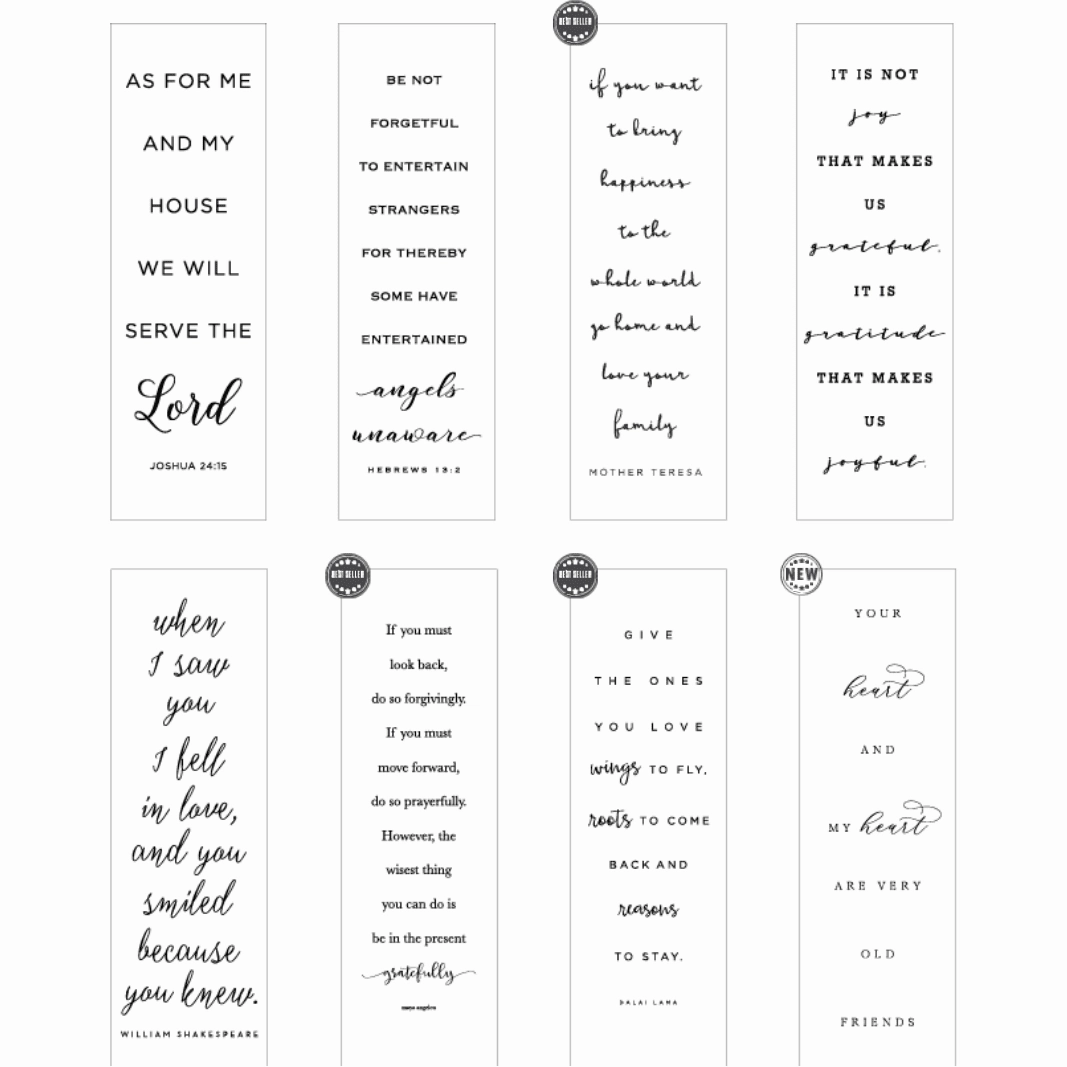 BEST SELLER
AS FOR ME
AND MY
HOUSE
WE WILL
SERVE THE
Lord
JOSHUA 24:15
BE NOT
FORGETFUL
TO ENTERTAIN
STRANGERS
FOR THEREBY
SOME HAVE
ENTERTAINED
angels
unaware
HEBREWS 13:2
if you want
to bring
happiness
to the
whole world
go home and
love your
family
MOTHER TERESA
IT IS NOT
joy
THAT MAKES
US
grateful.
IT IS
gratitude
THAT MAKES
US
joyful.
when
I saw
you
I fell
in love,
and you
smiled
because
you knew.
WILLIAM SHAKESPEARE
BEST SELLER
If you must
look back,
do so forgivingly.
If you must
move forward,
do so prayerfully.
However, the
wisest thing
you can do is
be in the present
gratefully
maya angelou
BEST SELLER
GIVE
THE ONES
YOU LOVE
wings TO FLY,
roots TO COME
BACK AND
reasons
TO STAY.
DALAI LAMA
NEW
YOUR
heart
AND
MY heart
ARE VERY
OLD
FRIENDS